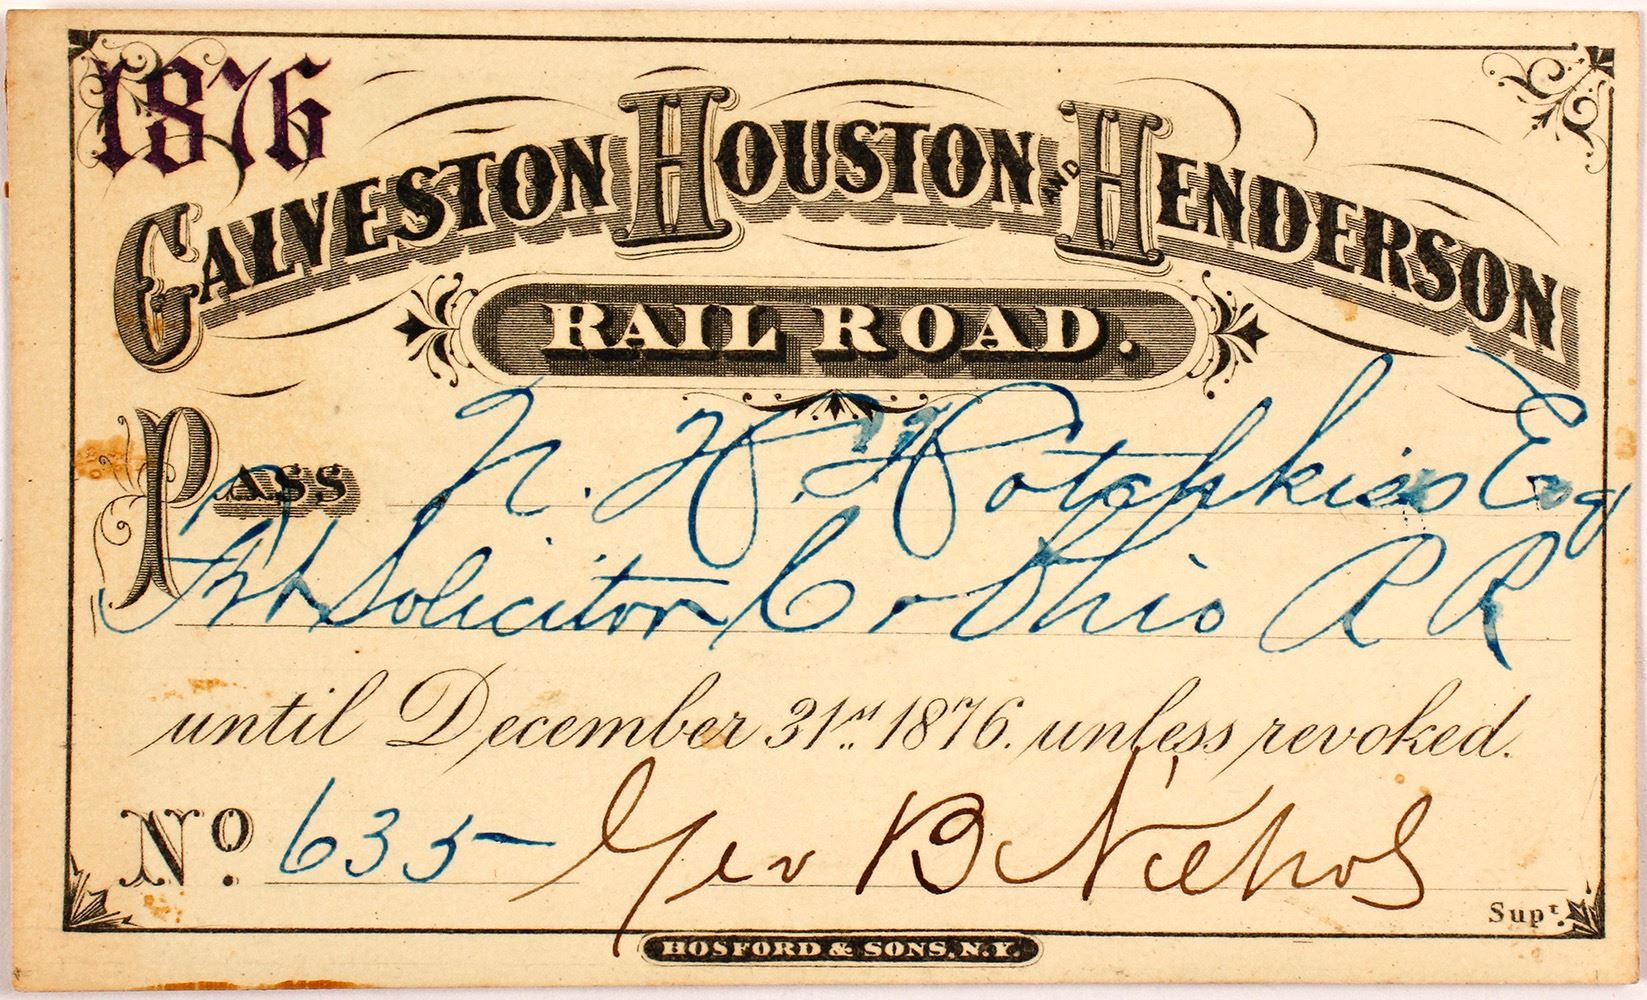 1876
GALVESTON HOUSTON AND HENDERSON
RAIL ROAD.
PASS N. H. Hotchkiss Esq
Frt Solicitor C & Ohio R R
until December 31st 1876. unless revoked.
No. 635 Geo B Nichols
Supt.
HOSFORD & SONS, N.Y.